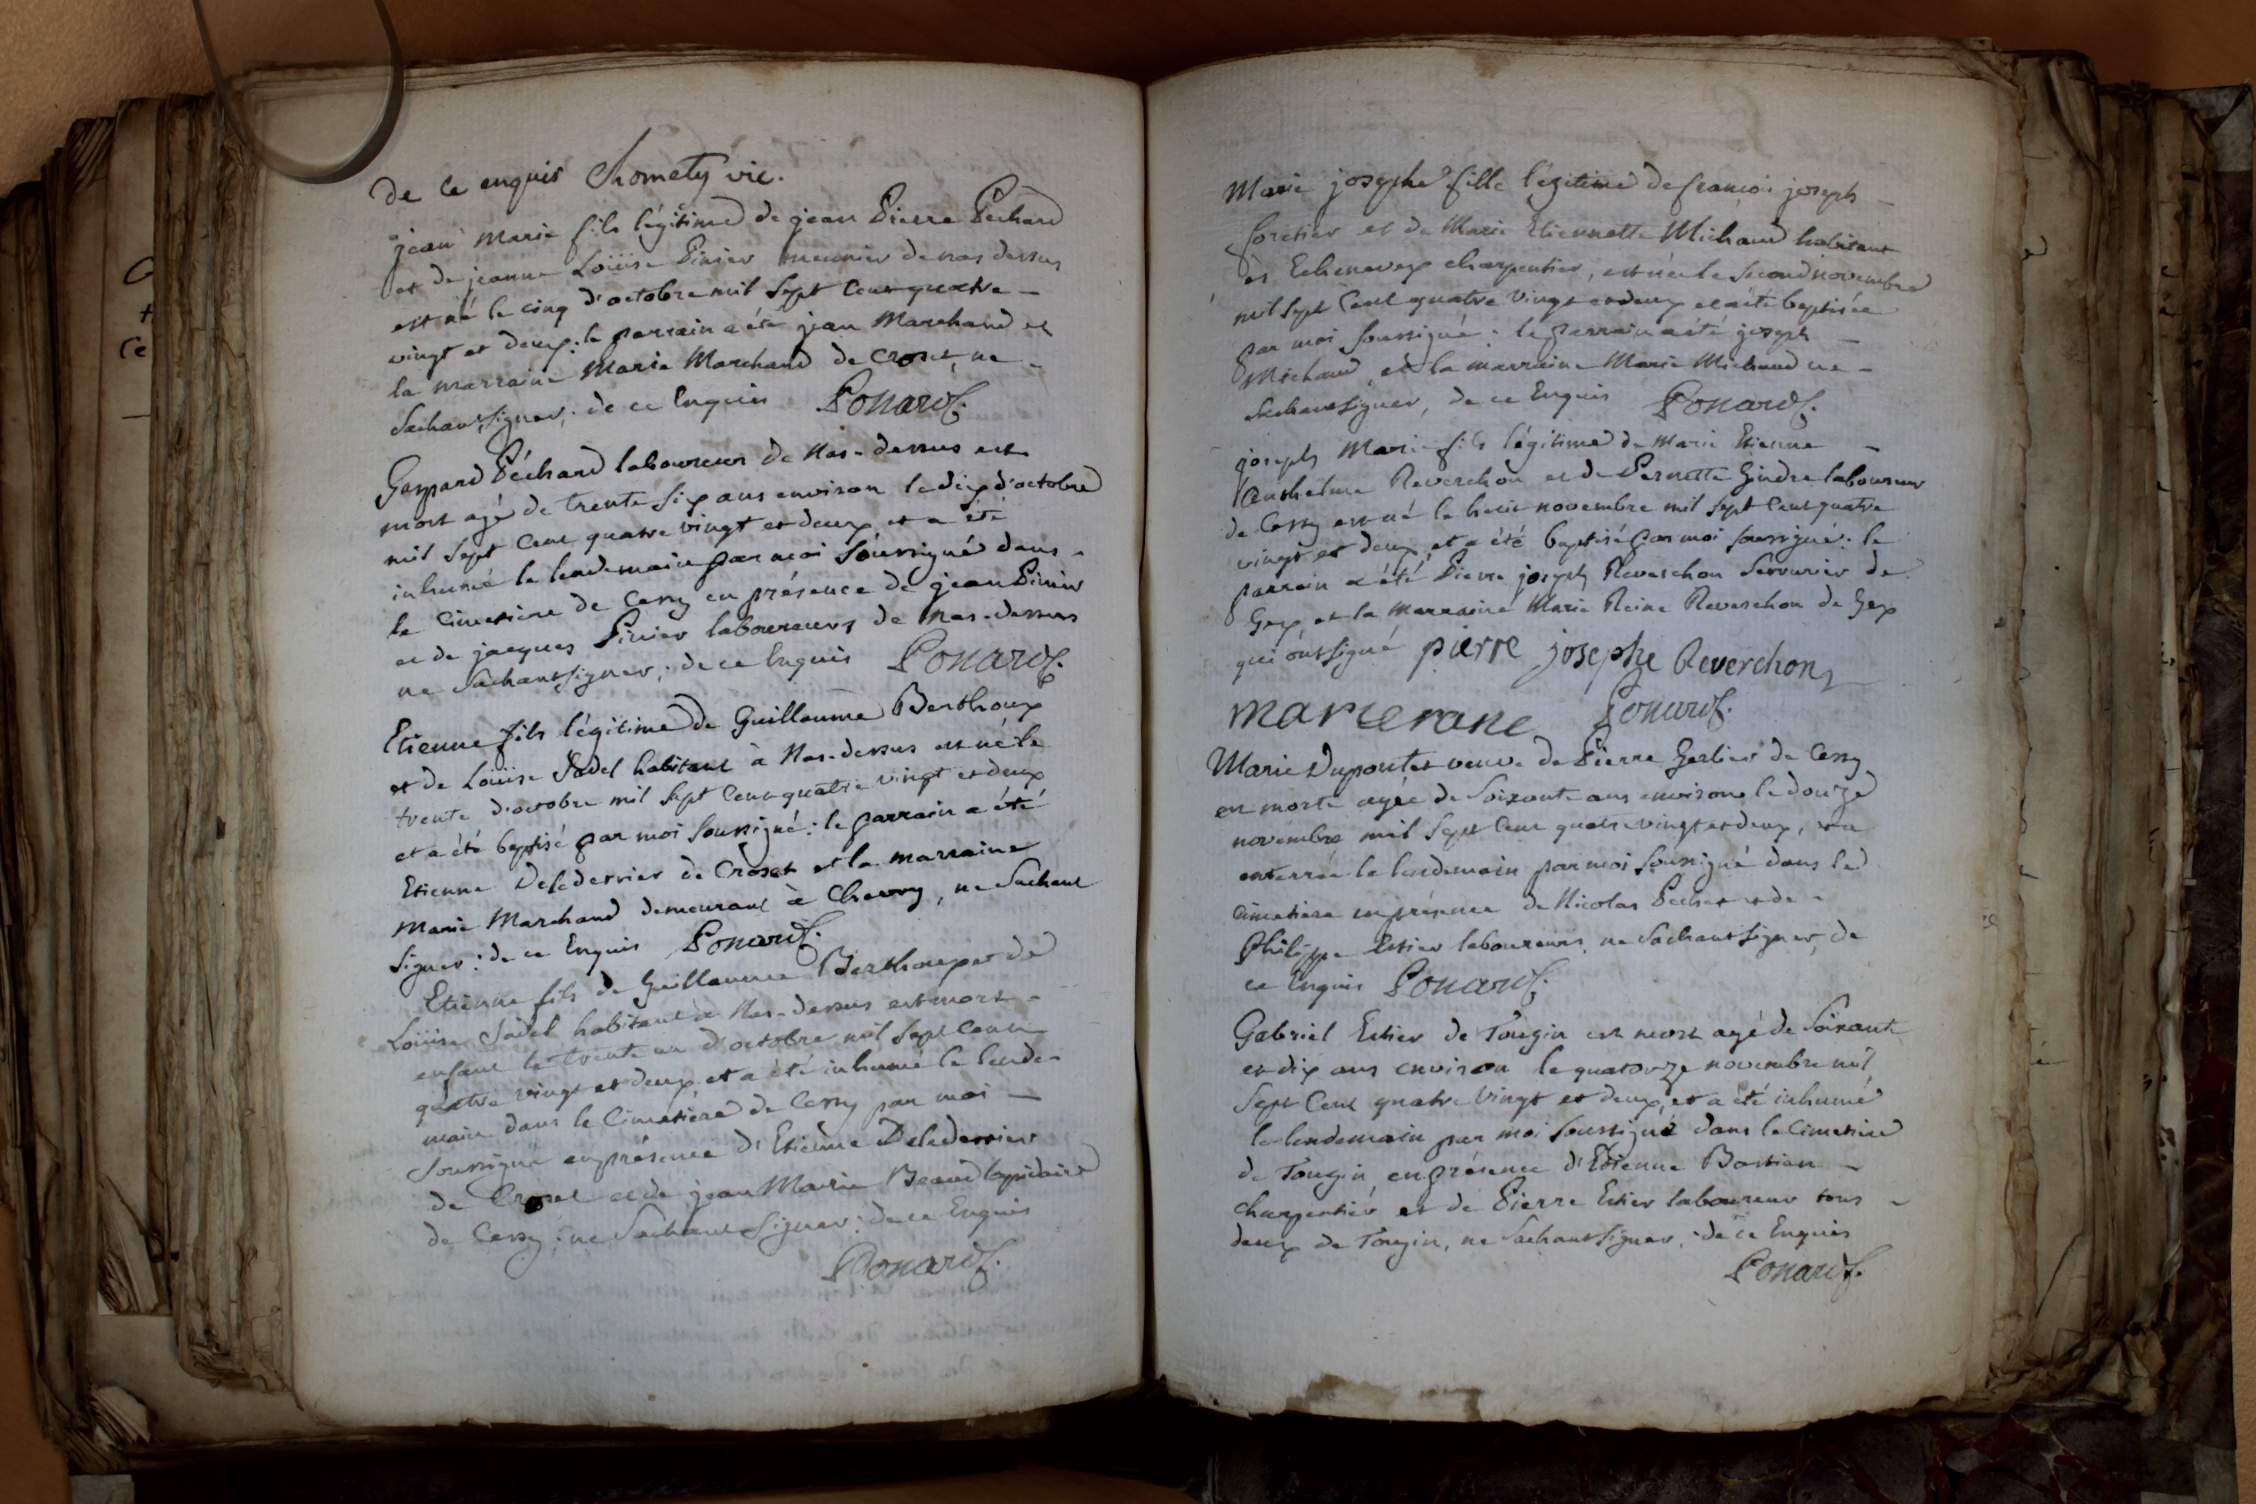 de ce enquis Thomety vic.
jean marie fils légitime de jean Pierre Péchard
et de jeanne Loüise Pinier meunier de nas dessus
est né le cinq d'octobre mil Sept Cent quatre
vingt et deux; le parrain a été jean Marchand et
la marraine Marie Marchand de Croset, ne
Sachant Signer; de ce Enquis Ponard C.
Gaspard Péchard laboureur de Nas-dessus est
mort agé de trente six ans environ le dix d'octobre
mil Sept Cent quatre vingt et deux et a été
inhumé le lendemain par moi Soussigné dans
le Cimetiere de Cessy en présence de jean Pinier
et de jacques Pinier laboureurs de Nas-dessus
ne Sachant Signer; de ce Enquis Ponard C.
Etienne fils légitime de Guillaume Berthoux
et de Loüise Jadel habitant à Nas-dessus est né le
trente d'octobre mil Sept Cent quatre vingt et deux
et a été baptisé par moi Soussigné: le parrain a été
Etienne Delederrier de Croset et la marraine
Marie Marchand demeurant à Chevry, ne Sachant
Signer: de ce Enquis Ponard C.
Etienne fils de Guillaume Berthoux et de
Loüise Jadel habitant à Nas-dessus est mort
enfant le trente un d'octobre mil Sept Cent
quatre vingt et deux et a été inhumé le lende-
main dans le Cimetiere de Cessy par moi
Soussigné en présence d'Etienne Delederrier
de Croset et de jean Marie Beaud lapidaire
de Cessy; ne Sachant Signer: de ce Enquis
Ponard C.
Marie josephe fille légitime de françois joseph
foretier et de Marie Etiennette Michaud habitant
ès Echenevex charpentier, est née le Second novembre
mil Sept Cent quatre vingt et deux et a été baptisée
par moi Soussigné: le parrain a été joseph
Michaud, et la marraine Marie Michaud ne
Sachant Signer, de ce Enquis Ponard C.
joseph Marie fils légitime de Marie Etienne
Anthelme Reverchon et de Pernette Gindre laboureur
de Cessy est né le huit novembre mil Sept Cent quatre
vingt et deux, et a été baptisé par moi Soussigné: le
parrain a été Pierre joseph Reverchon Serrurier de
Gex, et la marraine Marie Reine Reverchon de Gex
qui ont signé pierre josephe Reverchon
Ponard C.
Marie Dupontet veuve de Pierre Gerlier de Cessy
est morte agée de Soixante ans environ le douze
novembre mil Sept Cent quatre vingt et deux, et a
enterrée le lendemain par moi Soussigné dans le
Cimetiere en présence de Nicolas Pechet et de
Philippe Estier laboureurs ne Sachant Signer, de
ce Enquis Ponard C.
Gabriel Estier de Tougin est mort agé de Soixante
et dix ans environ le quatorze novembre mil
Sept Cent quatre Vingt et deux, et a été inhumé
le lendemain par moi Soussigné dans le Cimetiere
de Tougin en présence d'Etienne Bastian
charpentier et de Pierre Estier laboureur tous
deux de Tougin, ne Sachant Signer, de ce Enquis
Ponard C.